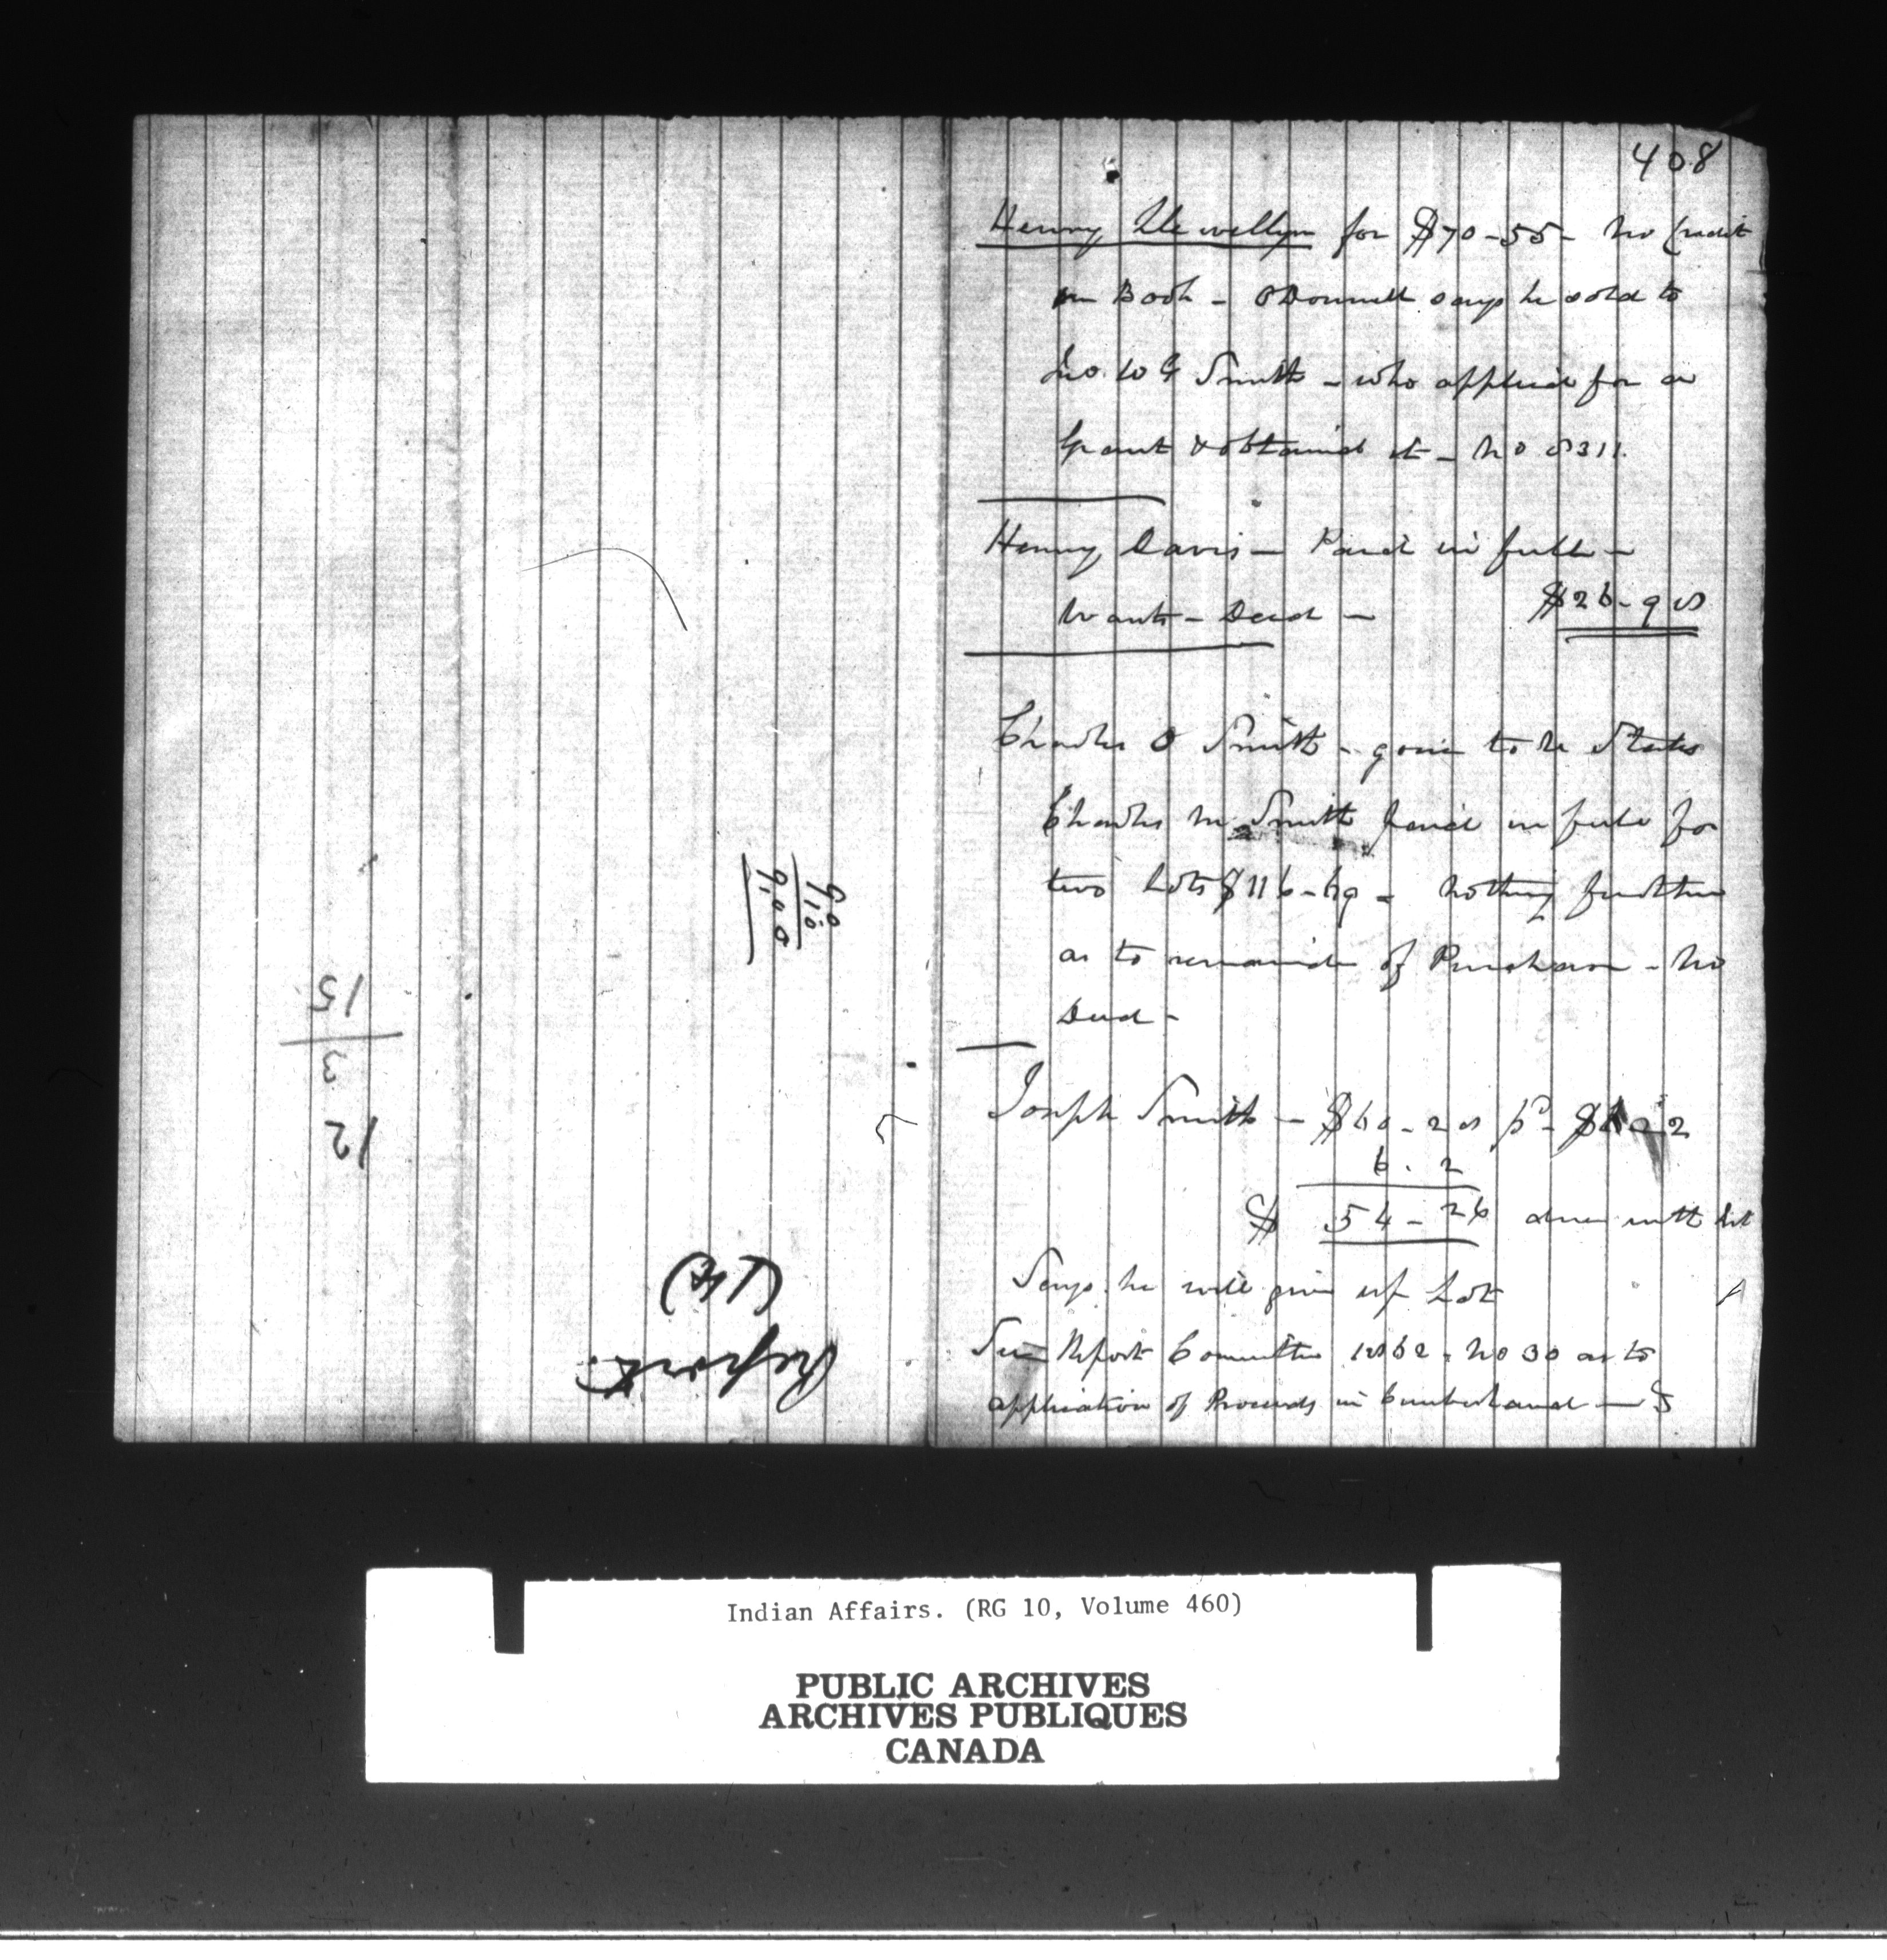 408
Henry Llewellyn for $70-55- No Credit
in Book - O Donnell says he sold to
Jno. W G Smith - who applied for a
Grant & obtained it - No 8311.
Henry Davis - Paid in full -
Wants - Deed - $26-98
Charles O Smith - gone to the States
Charles M Smith paid in full for
two Lots $116-69 - Nothing further
as to remainder of Purchase - No
Deed -
Joseph Smith - $60-28 pd - $ 2
6.2
$ 54-26 due with Int
Says he will give up Lot
See Report Committee 1862 - No 30 as to
application of Proceeds in Cumberland - S
90
910
9.00
15
3
12
(14)
Report.
Indian Affairs. (RG 10, Volume 460)
PUBLIC ARCHIVES
ARCHIVES PUBLIQUES
CANADA